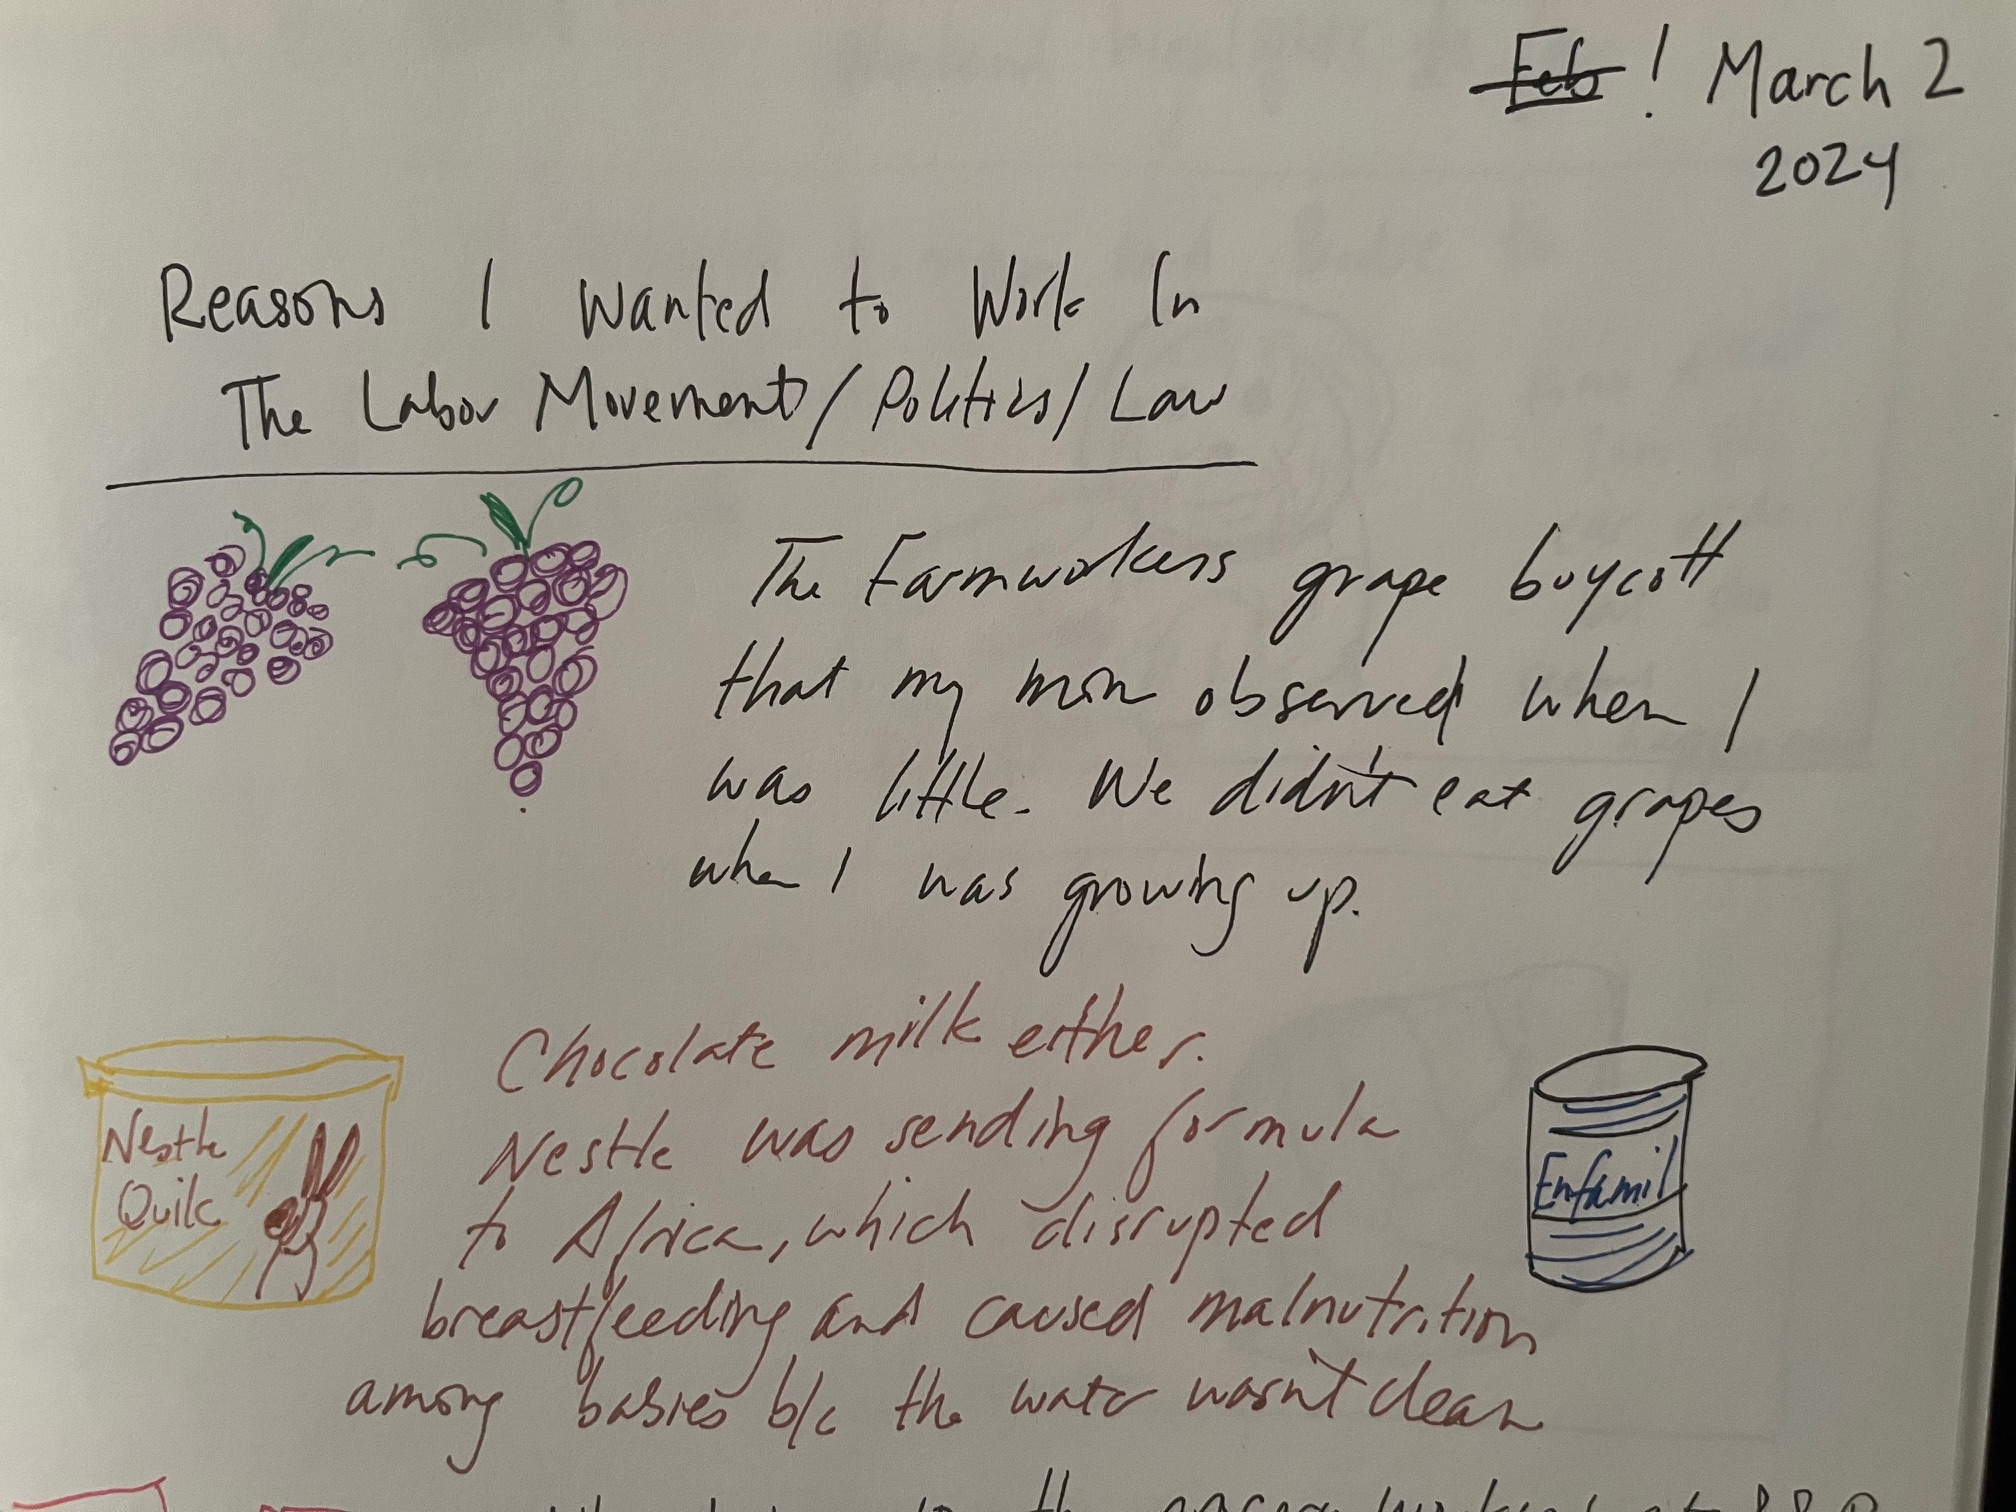 Feb! March 2
2024
Reasons I Wanted to Work In
The Labor Movement/Politics/Law
The Farmworkers grape boycott
that my mom observed when I
was little. We didn't eat grapes
when I was growing up.
Chocolate milk either.
Nestle was sending formula
to Africa, which disrupted
breastfeeding and caused malnutrition
among babies b/c the water wasn't clean
Nestle
Quik
Enfamil